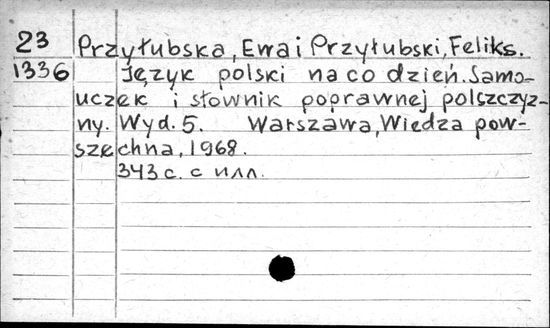 23 Przyłubska, Ewa i Przyłubski, Feliks.
1336 Język polski na co dzień. Samo-
uczek i słownik poprawnej polszczyz-
ny. Wyd. 5. Warszawa, Wiedza pow-
szechna, 1968.
343 с. с илл.